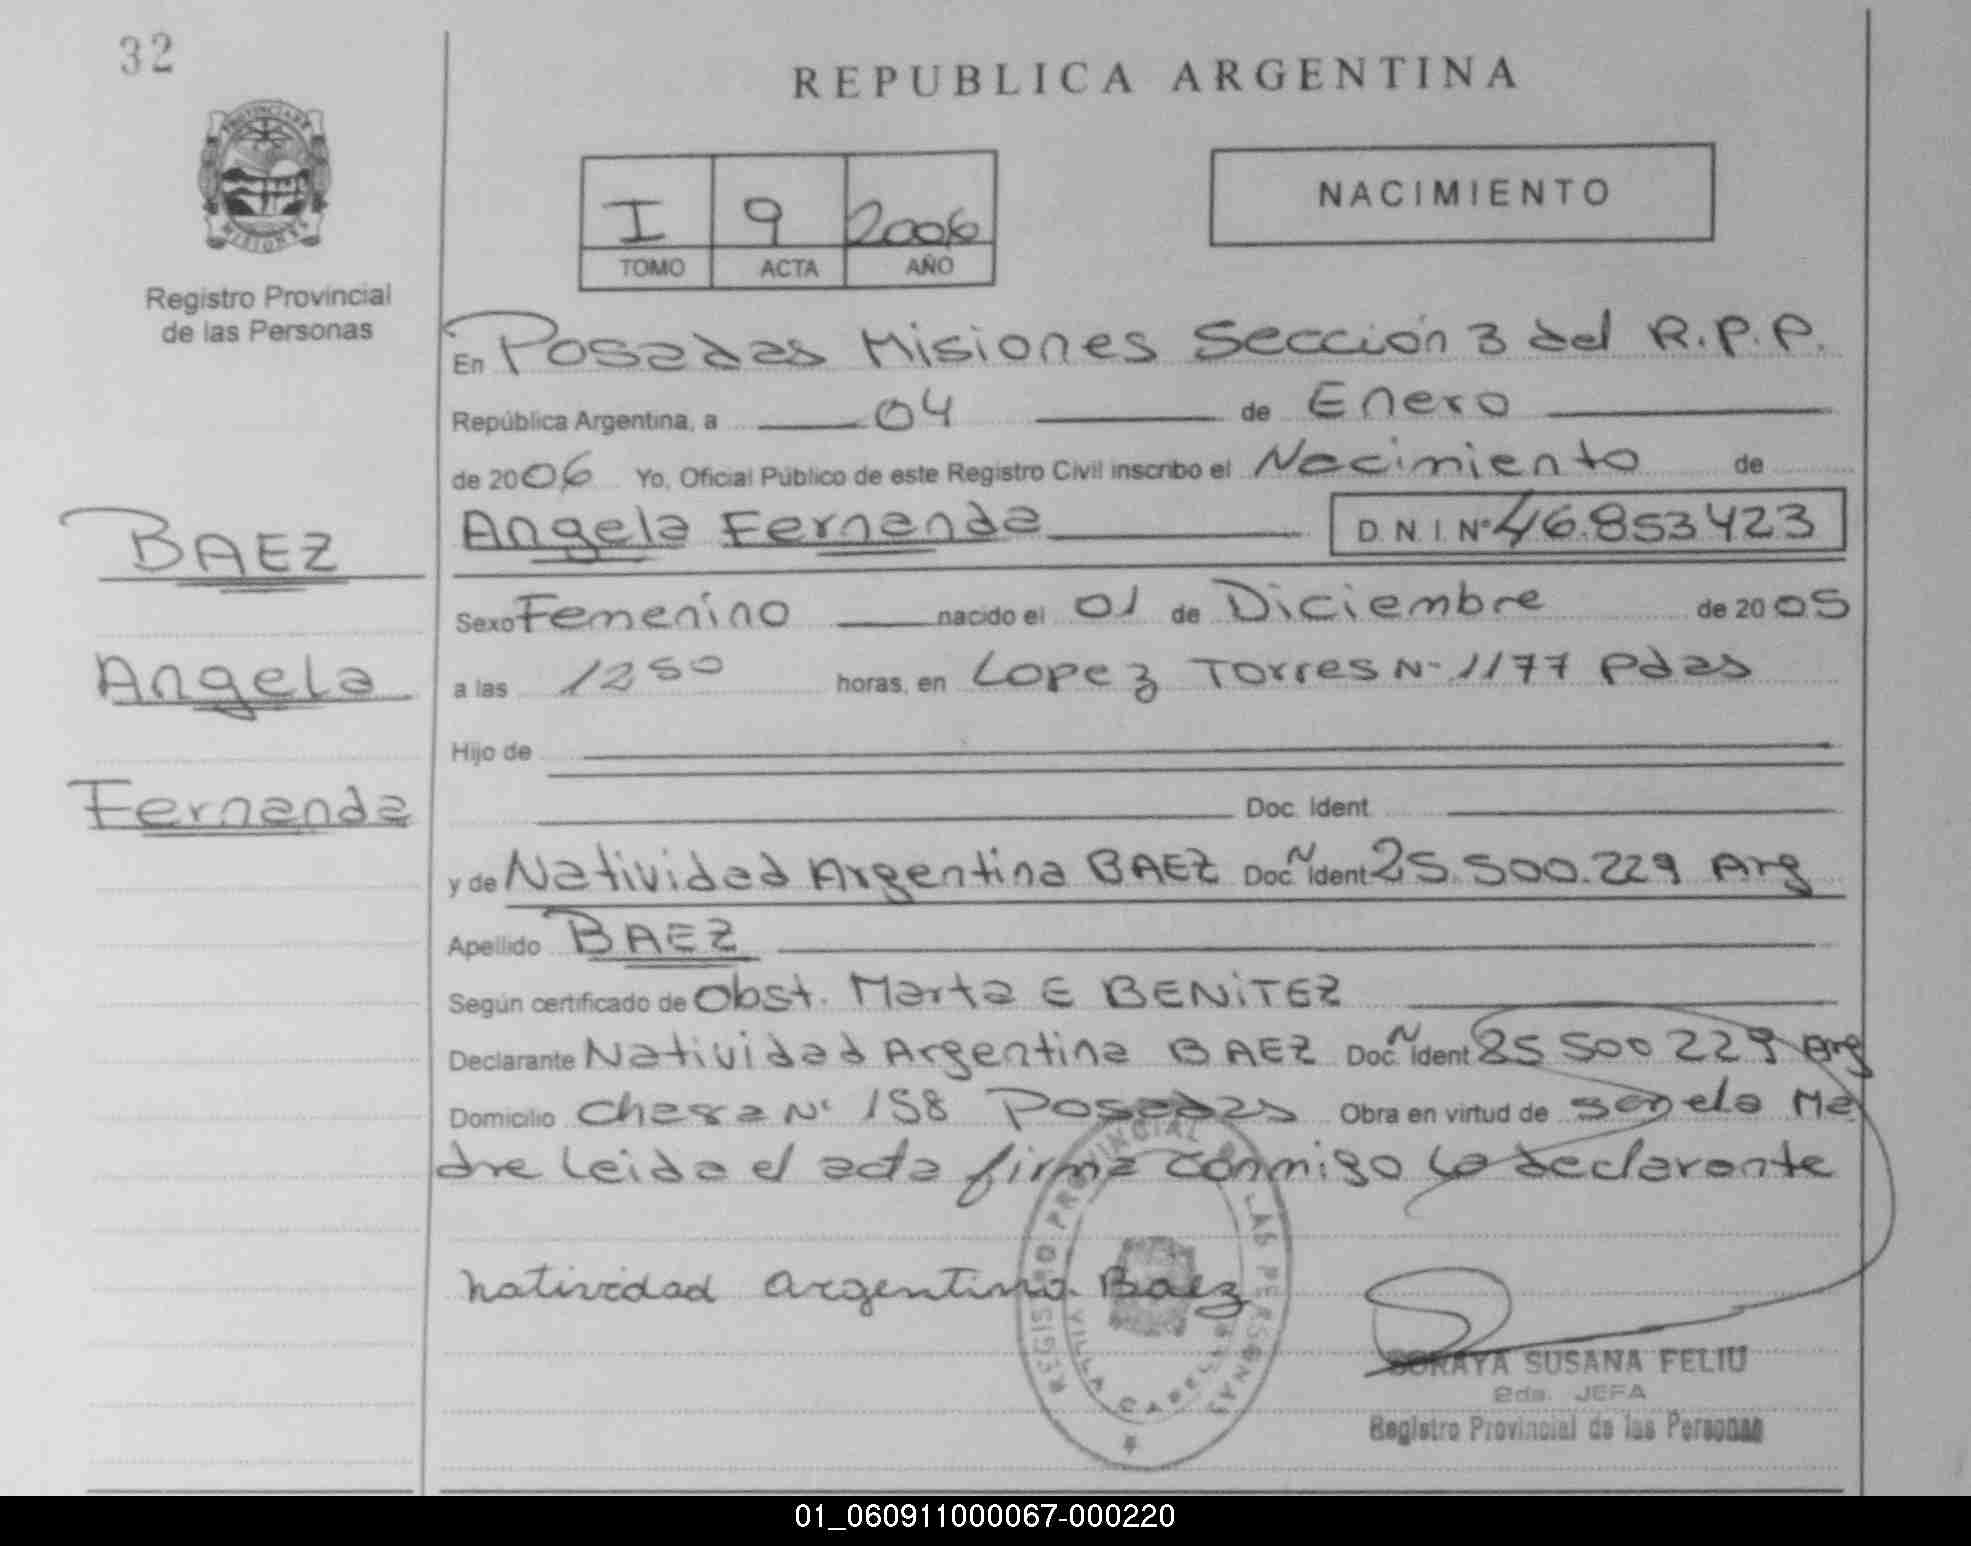 32
REPUBLICA ARGENTINA
PROVINCIA DE
MISIONES
Registro Provincial
de las Personas
I 9 2006
TOMO ACTA AÑO
NACIMIENTO
En Posadas Misiones Sección 3 del R.P.P.
República Argentina, a 04 de Enero
de 2006 Yo, Oficial Público de este Registro Civil inscribo el Nacimiento de
Angela Fernanda D.N.I. Nº 46.853.423
BAEZ
Angela
Fernanda
Sexo Femenino nacido el 01 de Diciembre de 2005
a las 12 50 horas, en Lopez Torres Nº 1177 Pdas
Hijo de
Doc. Ident
y de Natividad Argentina BAEZ Doc. Ñ Ident 25.500.229 Arg
Apellido BAEZ
Según certificado de Obst. Marta E BENiTEZ
Declarante Natividad Argentina BAEZ Doc. Ñ Ident 25 500 229 Arg
Domicilio Nº 158 Posadas Obra en virtud de ser la Ma
dre Leida el acta firma conmigo la declarante
natividad argentina Baez
REGISTRO PROVINCIAL DE LAS PERSONAS
VILLA CABELLO
SORAYA SUSANA FELIU
2da. JEFA
Registro Provincial de las Personas
01_060911000067-000220